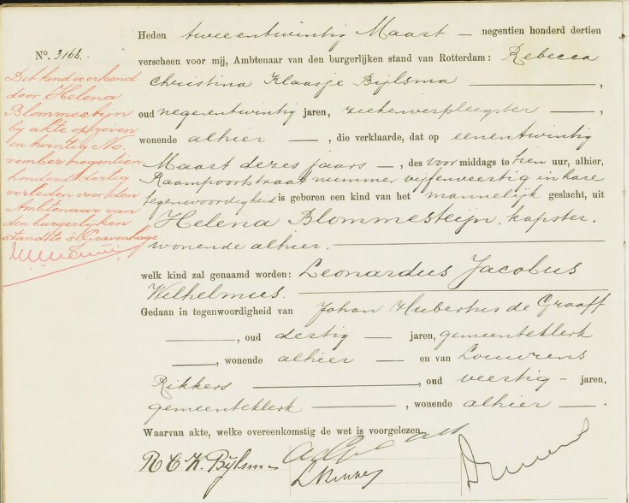 Nº. 3166.
Dit kind is erkend
door Helena
Blommesteijn
bij akte op zeven
en twintig No
vember negentien
honderd dertig
verleden voor den
Ambtenaar van
den burgerlijken
stand te 's Gravenhage
Heden tweeentwintig Maart — negentien honderd dertien
verscheen voor mij, Ambtenaar van den burgerlijken stand van Rotterdam: Rebecca
Christina Klaasje Bijlsma ———,
oud negenentwintig jaren, ziekenverpleegster ———,
wonende alhier ———, die verklaarde, dat op eenentwintig
Maart dezes jaars —, des voormiddags te tien uur, alhier,
Raampoortstraat nummer vijfenveertig in hare
tegenwoordigheid is geboren een kind van het mannelijk geslacht, uit
Helena Blommesteijn, kapster,
wonende alhier. ———
welk kind zal genaamd worden: Leonardus Jacobus
Wilhelmus. ———
Gedaan in tegenwoordigheid van Johan Hubertus de Graaff
———, oud dertig — jaren, gemeenteklerk
———, wonende alhier — en van Louwrens
Rikkers ———, oud veertig — jaren,
gemeenteklerk ———, wonende alhier —.
Waarvan akte, welke overeenkomstig de wet is voorgelezen.
R C K Bijlsma